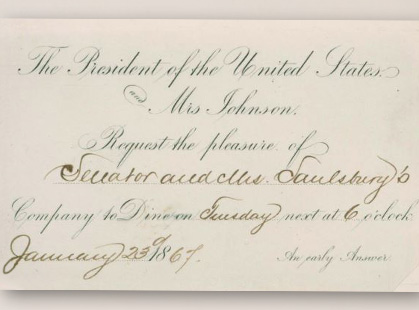 The President of the United States
and
Mrs Johnson.
Request the pleasure of
Senator and Mrs. Saulsbury's
Company to Dine on Tuesday next at 6 o'clock
January 23d 1867.
An early Answer.